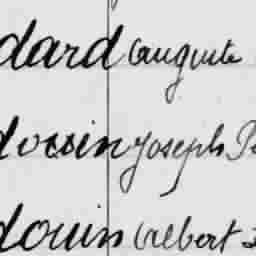 dard Auguste
dossin Joseph P
douin Albert